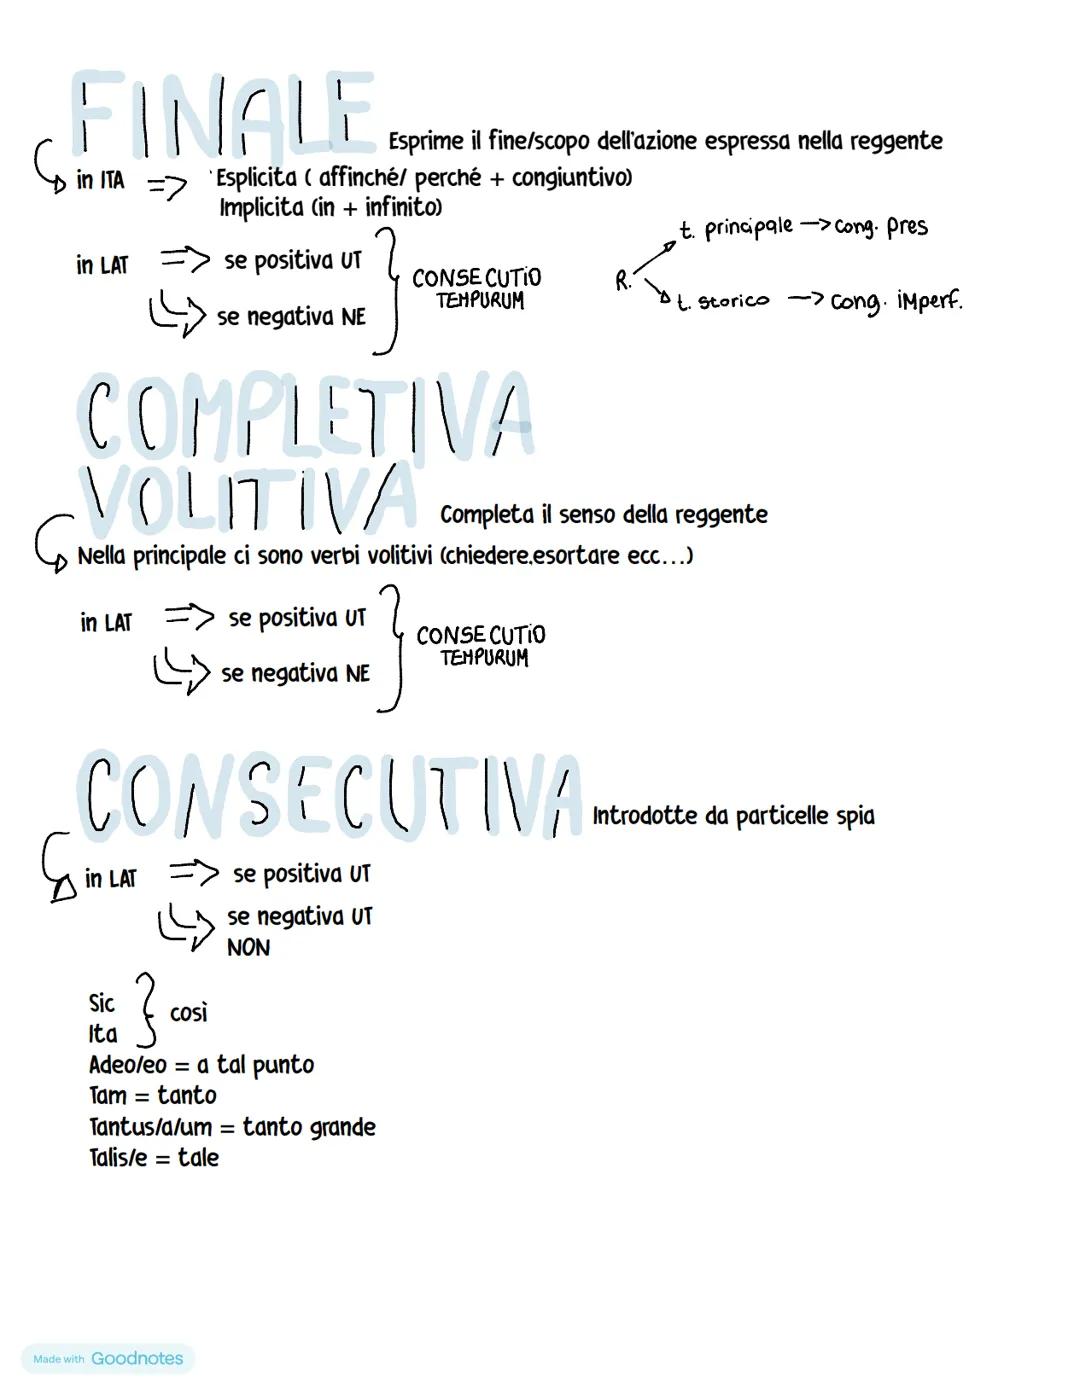 FINALE
Esprime il fine/scopo dell'azione espressa nella reggente
in ITA => Esplicita ( affinché/ perché + congiuntivo)
Implicita (in + infinito)
in LAT => se positiva UT
se negativa NE
CONSECUTIO
TEMPURUM
R.
t. principale -> cong. pres
t. storico -> cong. imperf.
COMPLETIVA
VOLITIVA
Completa il senso della reggente
Nella principale ci sono verbi volitivi (chiedere,esortare ecc...)
in LAT => se positiva UT
se negativa NE
CONSECUTIO
TEMPURUM
CONSECUTIVA
Introdotte da particelle spia
in LAT => se positiva UT
se negativa UT
NON
Sic
Ita
così
Adeo/eo = a tal punto
Tam = tanto
Tantus/a/um = tanto grande
Talis/e = tale
Made with Goodnotes